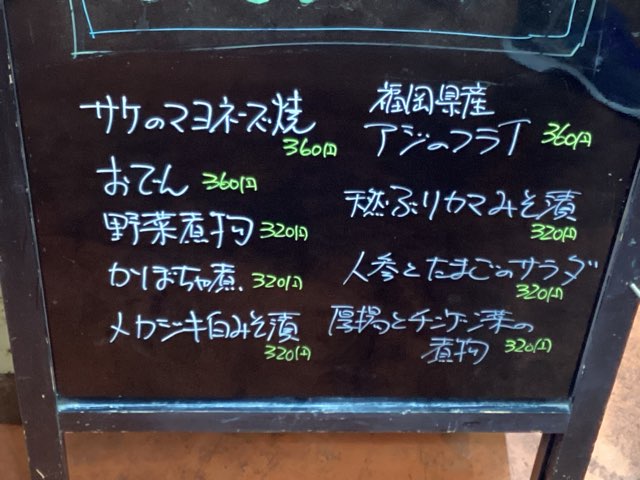 サケのマヨネーズ焼
360円
おでん 360円
野菜煮物 320円
かぼちゃ煮 320円
メカジキ白みそ漬
320円
福岡県産
アジのフライ 360円
天然ぶりカマみそ漬
320円
人参とたまごのサラダ
320円
厚揚とチンゲン菜の
煮物 320円